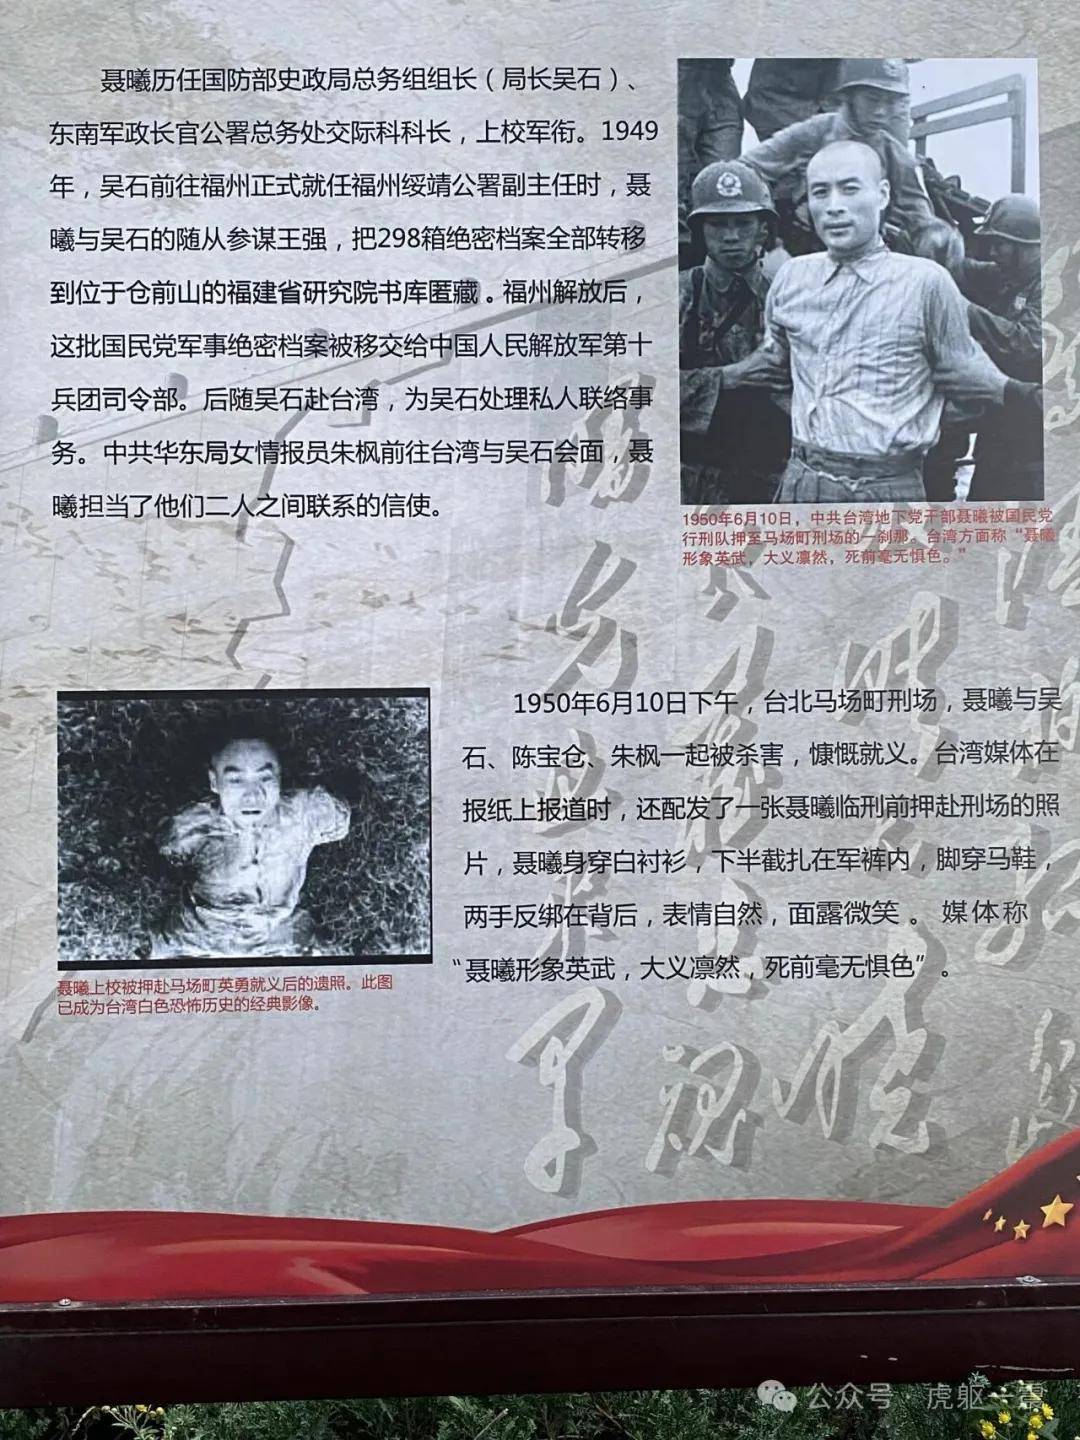 聂曦历任国防部史政局总务组组长（局长吴石）、
东南军政长官公署总务处交际科科长，上校军衔。1949
年，吴石前往福州正式就任福州绥靖公署副主任时，聂
曦与吴石的随从参谋王强，把298箱绝密档案全部转移
到位于仓前山的福建省研究院书库匿藏。福州解放后，
这批国民党军事绝密档案被移交给中国人民解放军第十
兵团司令部。后随吴石赴台湾，为吴石处理私人联络事
务。中共华东局女情报员朱枫前往台湾与吴石会面，聂
曦担当了他们二人之间联系的信使。
1950年6月10日，中共台湾地下党干部聂曦被国民党
行刑队押至马场町刑场的一刹那。台湾方面称“聂曦
形象英武，大义凛然，死前毫无惧色。”
1950年6月10日下午，台北马场町刑场，聂曦与吴
石、陈宝仓、朱枫一起被杀害，慷慨就义。台湾媒体在
报纸上报道时，还配发了一张聂曦临刑前押赴刑场的照
片，聂曦身穿白衬衫，下半截扎在军裤内，脚穿马鞋，
两手反绑在背后，表情自然，面露微笑。媒体称
“聂曦形象英武，大义凛然，死前毫无惧色”。
聂曦上校被押赴马场町英勇就义后的遗照。此图
已成为台湾白色恐怖历史的经典影像。
公众号 · 虎躯一震